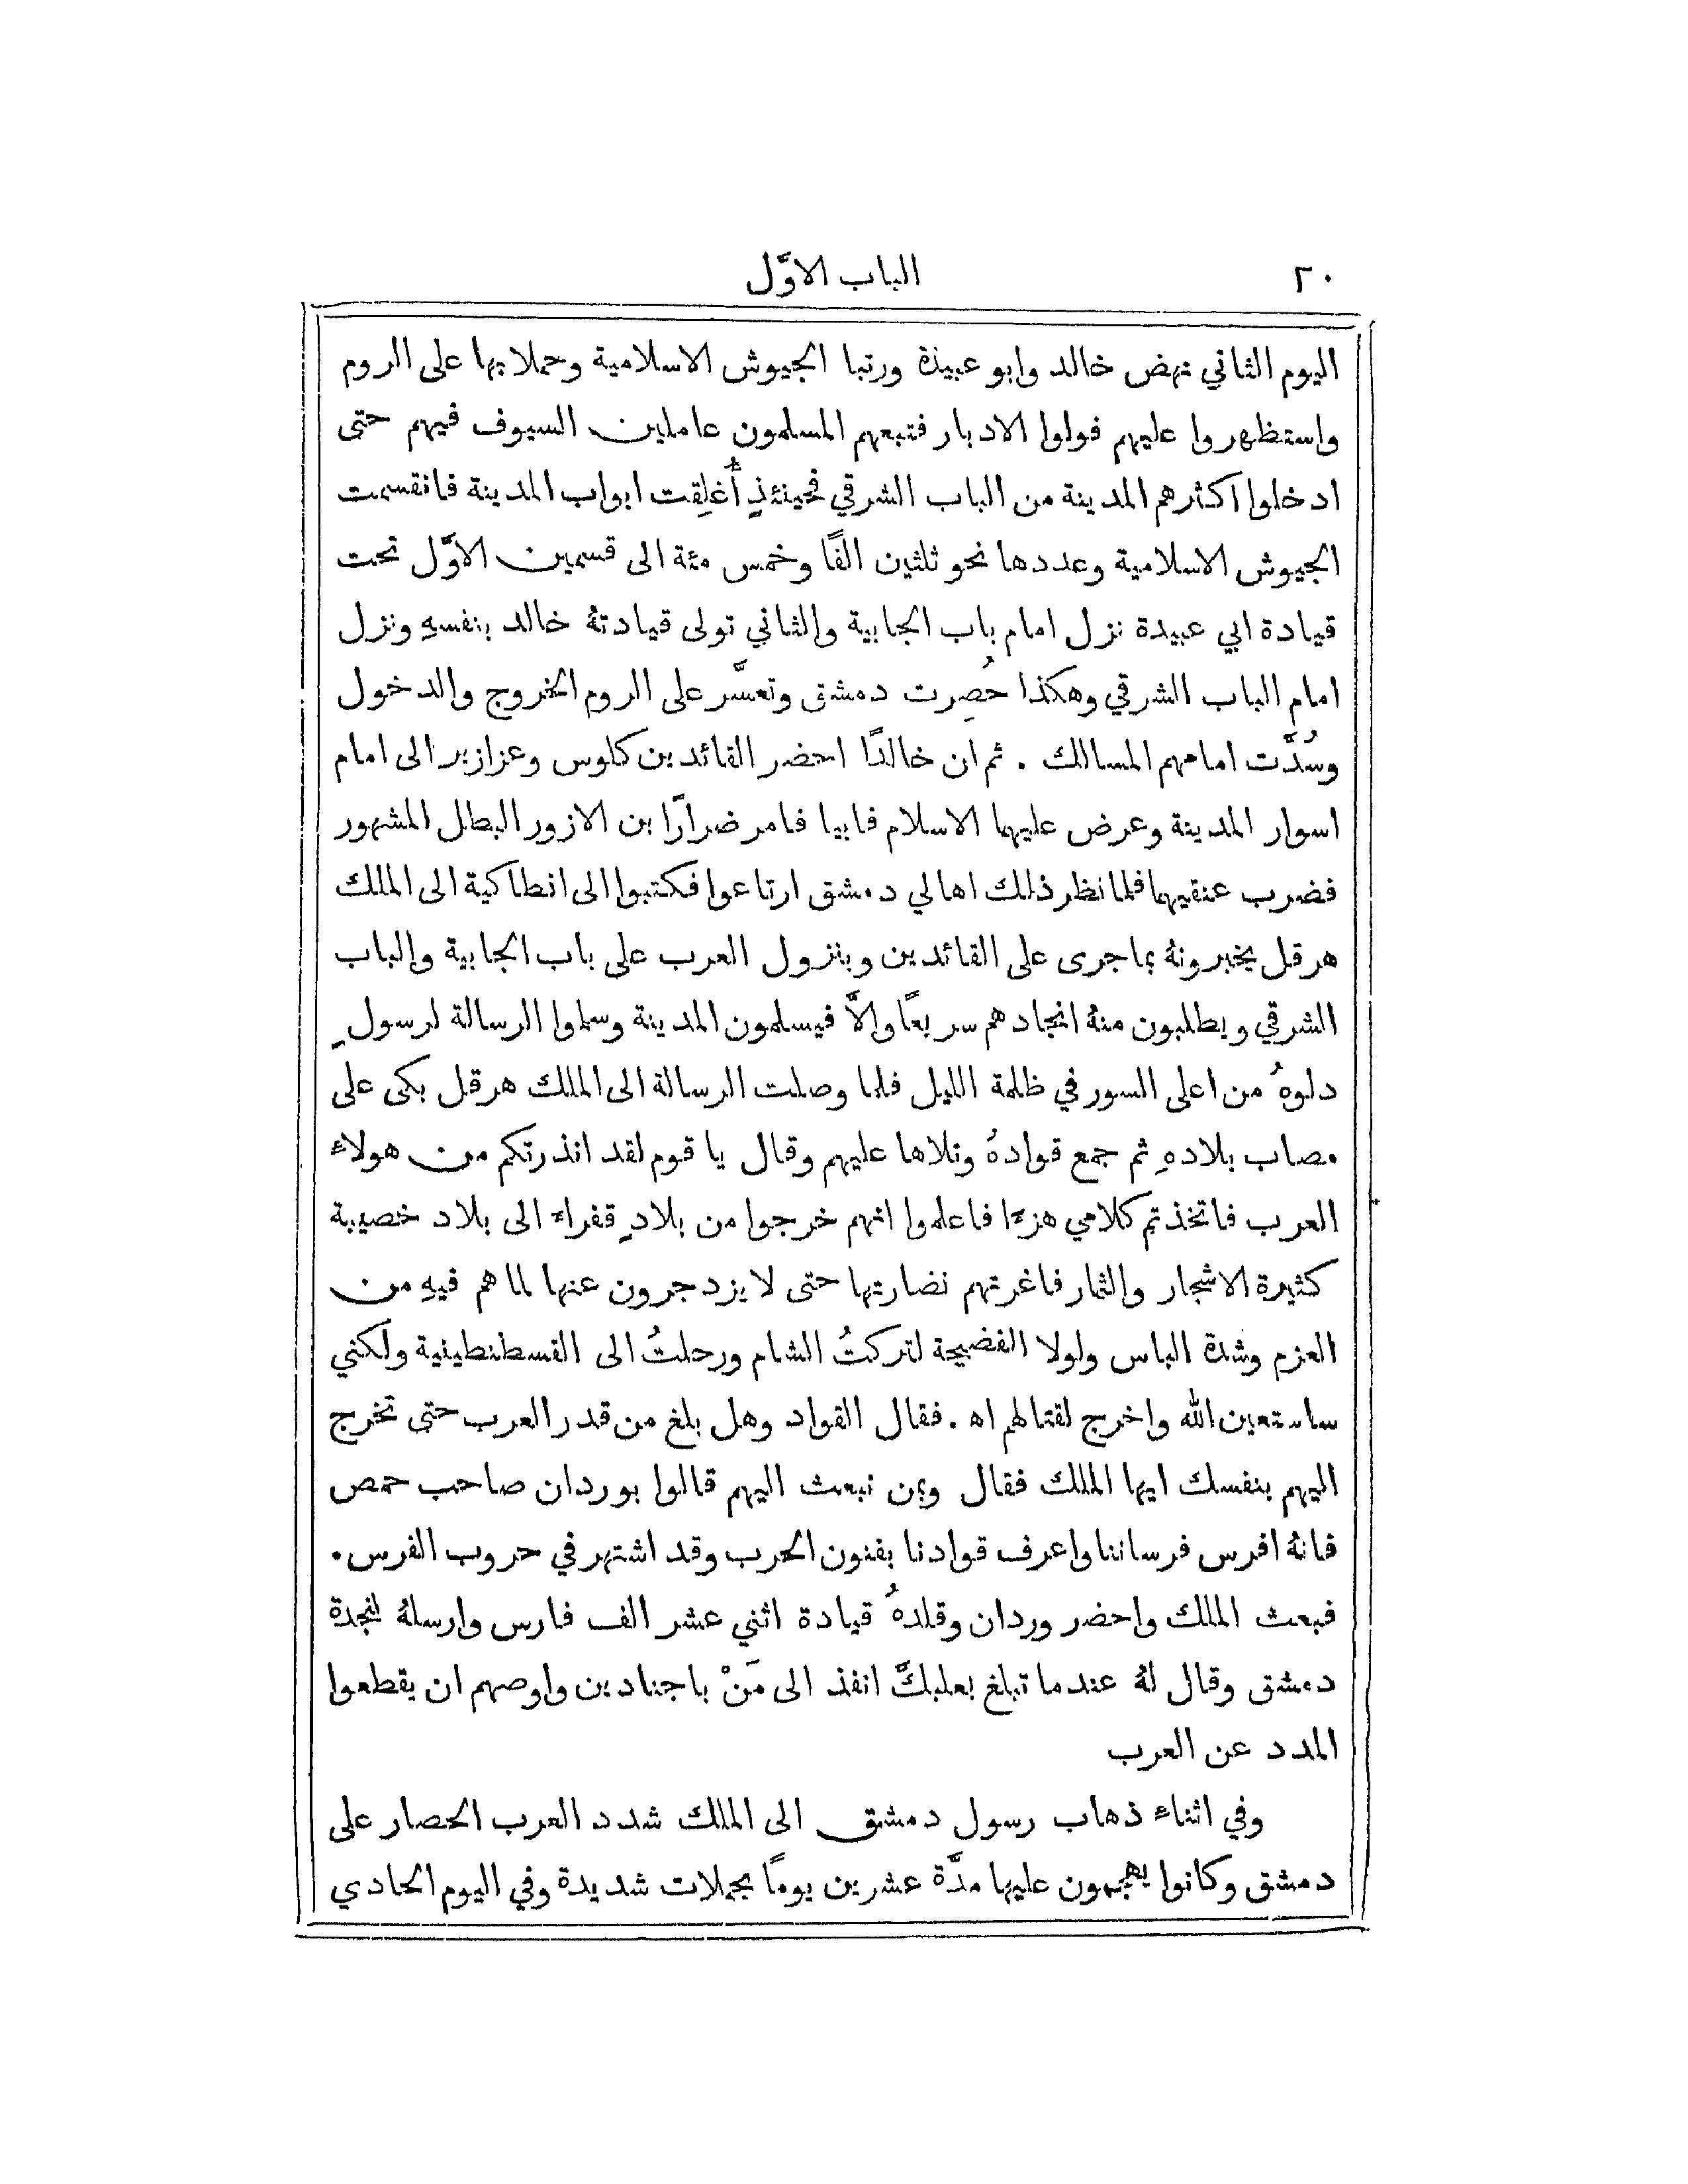 ٢٠
الباب الاوَّل
اليوم الثاني نهض خالد وابو عبيدة ورتبا الجيوش الاسلامية وحملا بها على الروم
واستظهروا عليهم فولوا الادبار فتبعهم المسلمون عاملين السيوف فيهم حتى
ادخلوا اكثرهم المدينة من الباب الشرقي فحينئذٍ أُغلِقت ابواب المدينة فانقسمت
الجيوش الاسلامية وعددها نحو ثلثين الفًا وخمس مئة الى قسمين الاوَّل تحت
قيادة ابي عبيدة نزل امام باب الجابية والثاني تولى قيادتهُ خالد بنفسهِ ونزل
امام الباب الشرقي وهكذا حُصِرت دمشق وتعسَّر على الروم الخروج والدخول
وسُدَّت امامهم المسالك . ثم ان خالدًا احضر القائدين كلوس وعزازير الى امام
اسوار المدينة وعرض عليهما الاسلام فابيا فامر ضرارًا بن الازور البطل المشهور
فضرب عنقيهما فلما نظر ذلك اهالي دمشق ارتاعوا فكتبوا الى انطاكية الى الملك
هرقل يخبرونهُ بما جرى على القائدين وبنزول العرب على باب الجابية والباب
الشرقي ويطلبون منهُ انجادهم سريعًا والَّا فيسلمون المدينة وسلموا الرسالة لرسولٍ
دلوهُ من اعلى السور في ظلمة الليل فلما وصلت الرسالة الى الملك هرقل بكى على
مصاب بلادهِ ثم جمع قوادهُ وتلاها عليهم وقال يا قوم لقد انذرتكم من هولاء
العرب فاتخذتم كلامي هزءا فاعلموا انهم خرجوا من بلادٍ قفراء الى بلاد خصيبة
كثيرة الاشجار والثمار فاغرتهم نضارتها حتى لا يزدجرون عنها لما هم فيهِ من
العزم وشدة الباس ولولا الفضيحة لتركتُ الشام ورحلتُ الى القسطنطينية ولكني
ساستعين الله واخرج لقتالهم اه . فقال القواد وهل بلغ من قدر العرب حتى تخرج
اليهم بنفسك ايها الملك فقال وبمن نبعث اليهم قالوا بوردان صاحب حمص
فانهُ افرس فرساننا واعرف قوادنا بفنون الحرب وقد اشتهر في حروب الفرس.
فبعث الملك واحضر وردان وقلدهُ قيادة اثني عشر الف فارس وارسلهُ لنجدة
دمشق وقال لهُ عندما تبلغ بعلبكَّ انفذ الى مَنْ باجنادين واوصهم ان يقطعوا
المدد عن العرب
وفي اثناء ذهاب رسول دمشق الى الملك شدد العرب الحصار على
دمشق وكانوا يهجمون عليها مدَّة عشرين يومًا بحملات شديدة وفي اليوم الحادي